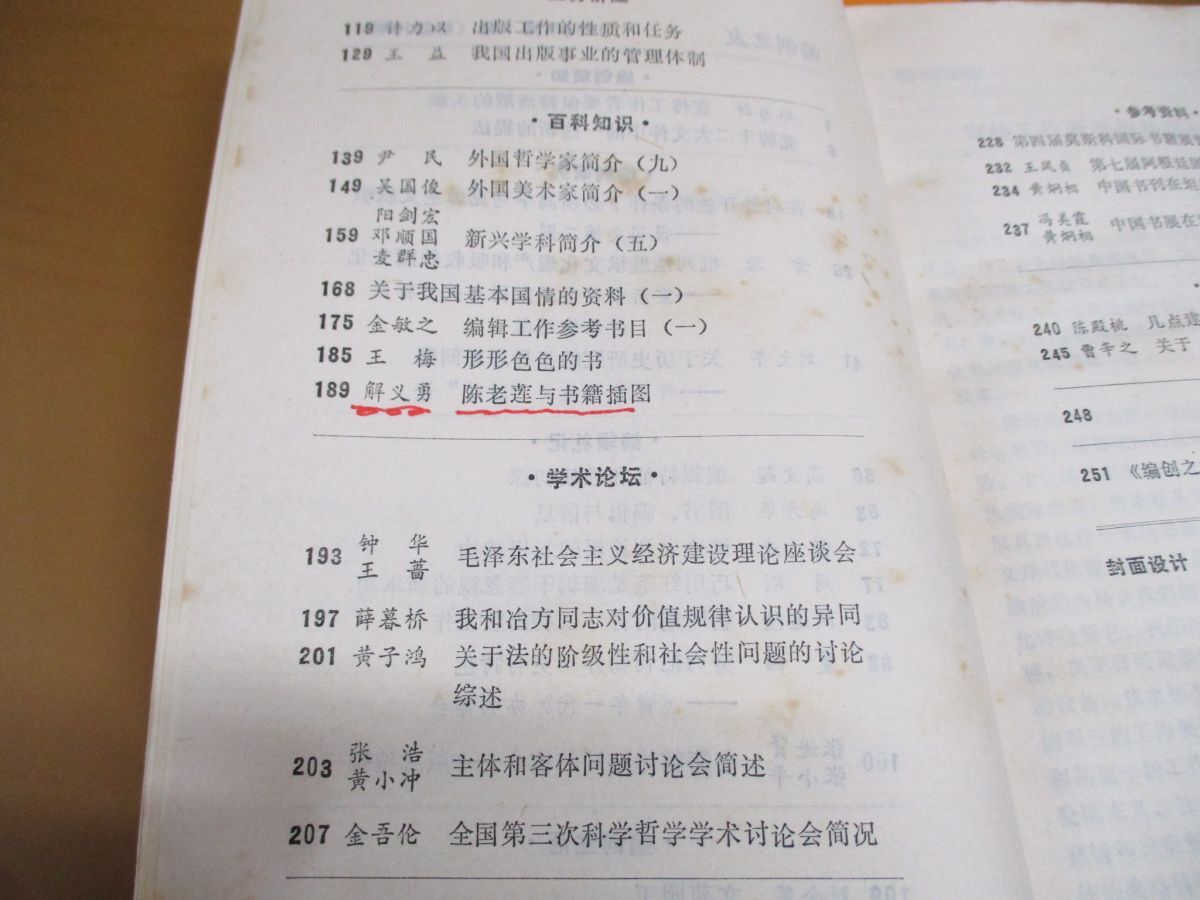 119 许力以 出版工作的性质和任务
129 王 益 我国出版事业的管理体制
·百科知识·
139 尹 民 外国哲学家简介（九）
149 吴国俊 外国美术家简介（一）
阳剑宏
159 邓顺国 新兴学科简介（五）
麦群忠
168 关于我国基本国情的资料（一）
175 金敏之 编辑工作参考书目（一）
185 王 梅 形形色色的书
189 解义勇 陈老莲与书籍插图
·学术论坛·
钟 华
193 毛泽东社会主义经济建设理论座谈会
王 蔷
197 薛暮桥 我和冶方同志对价值规律认识的异同
201 黄子鸿 关于法的阶级性和社会性问题的讨论
综述
张 浩
203 主体和客体问题讨论会简述
黄小冲
207 金吾伦 全国第三次科学哲学学术讨论会简况
·参考资料·
228 第四届莫斯科国际书籍展
232 王凤贞 第七届阿根廷
234 黄炳相 中国书刊在
冯美霞
237 中国书展在
黄炳相
240 陈殿桃 几点建
245 曹辛之 关于
248
251 《编创之
封面设计